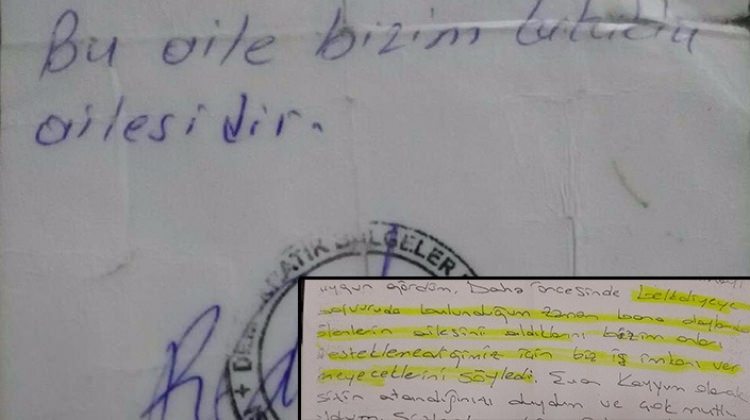 Bu aile bizim tutuklu
ailesidir.
DEMOKRATİK BÖLGELER
uygun gördüm. Daha öncesinde belediyeye
başvuruda bulunduğum zaman bana olaylarda
ölenlerin ailesini aldıklarını bizim onları
desteklemediğimiz için biz iş imkanı ver
meyeceklerini söyledi. Kayyum olarak
sizin atandığınızı duydum ve çok mutlu